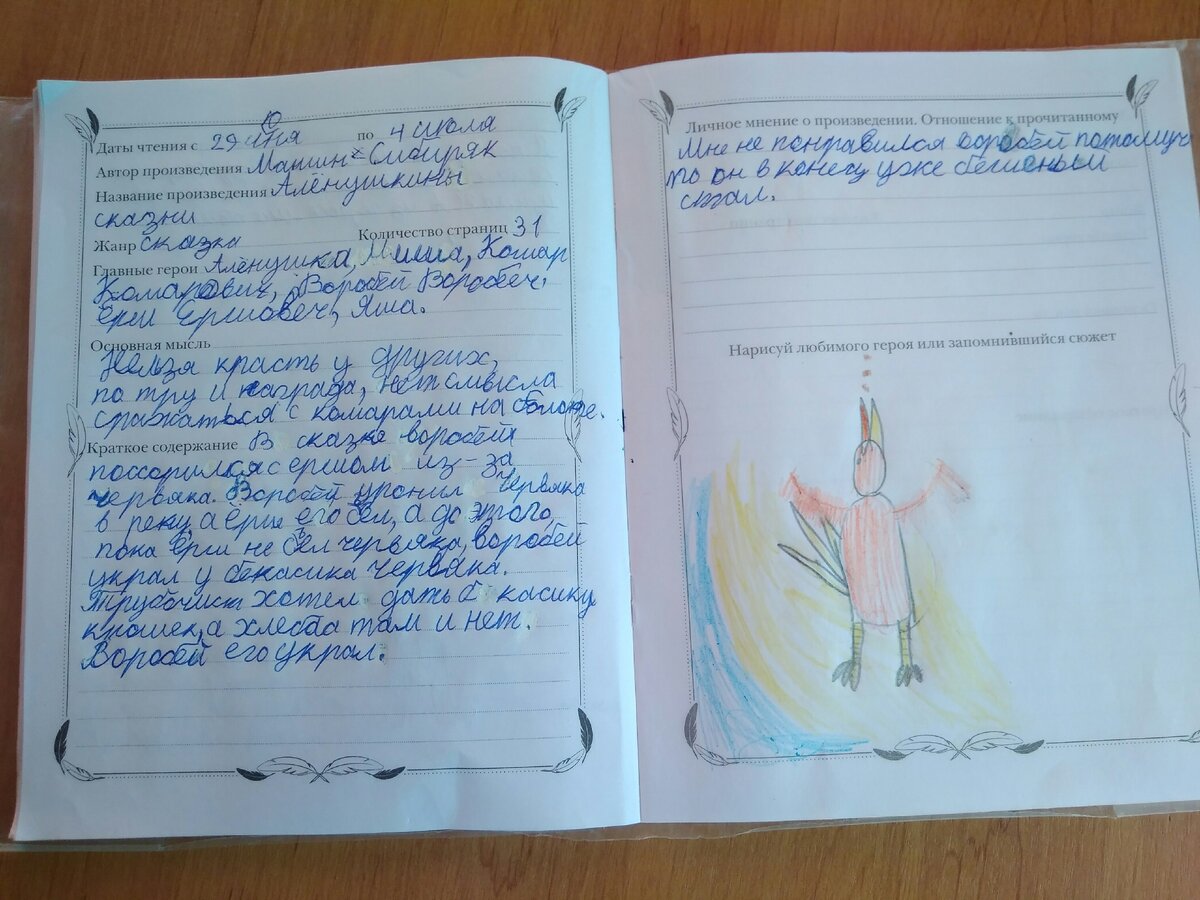 Даты чтения с 29 июня по 4 июля
Автор произведения Мамин-Сибиряк
Название произведения Алёнушкины
сказки
Жанр сказка Количество страниц 31
Главные герои Алёнушка, Миша, Комар
Комарович, Воробей Воробеч.
ёрш Ершовеч, Яша.
Основная мысль
Нельза красть у других,
по тру и награда, нет смысла
сражаться с комарами на болоте.
Краткое содержание В сказке воробей
поссорился с ершом из-за
червяка. Воробей уронил червяка
в реку а ёрш его ъел, а до этого,
пока ёрш не ъел червяка, воробей
украл у бекасика червяка.
Трубочист хотел дать б касику
крошек, а хлеба там и нет.
Воробей его украл.
Личное мнение о произведении. Отношение к прочитанному
Мне не понравился воробей потомуч
то он в конецу уже бешеный
стал.
Нарисуй любимого героя или запомнившийся сюжет